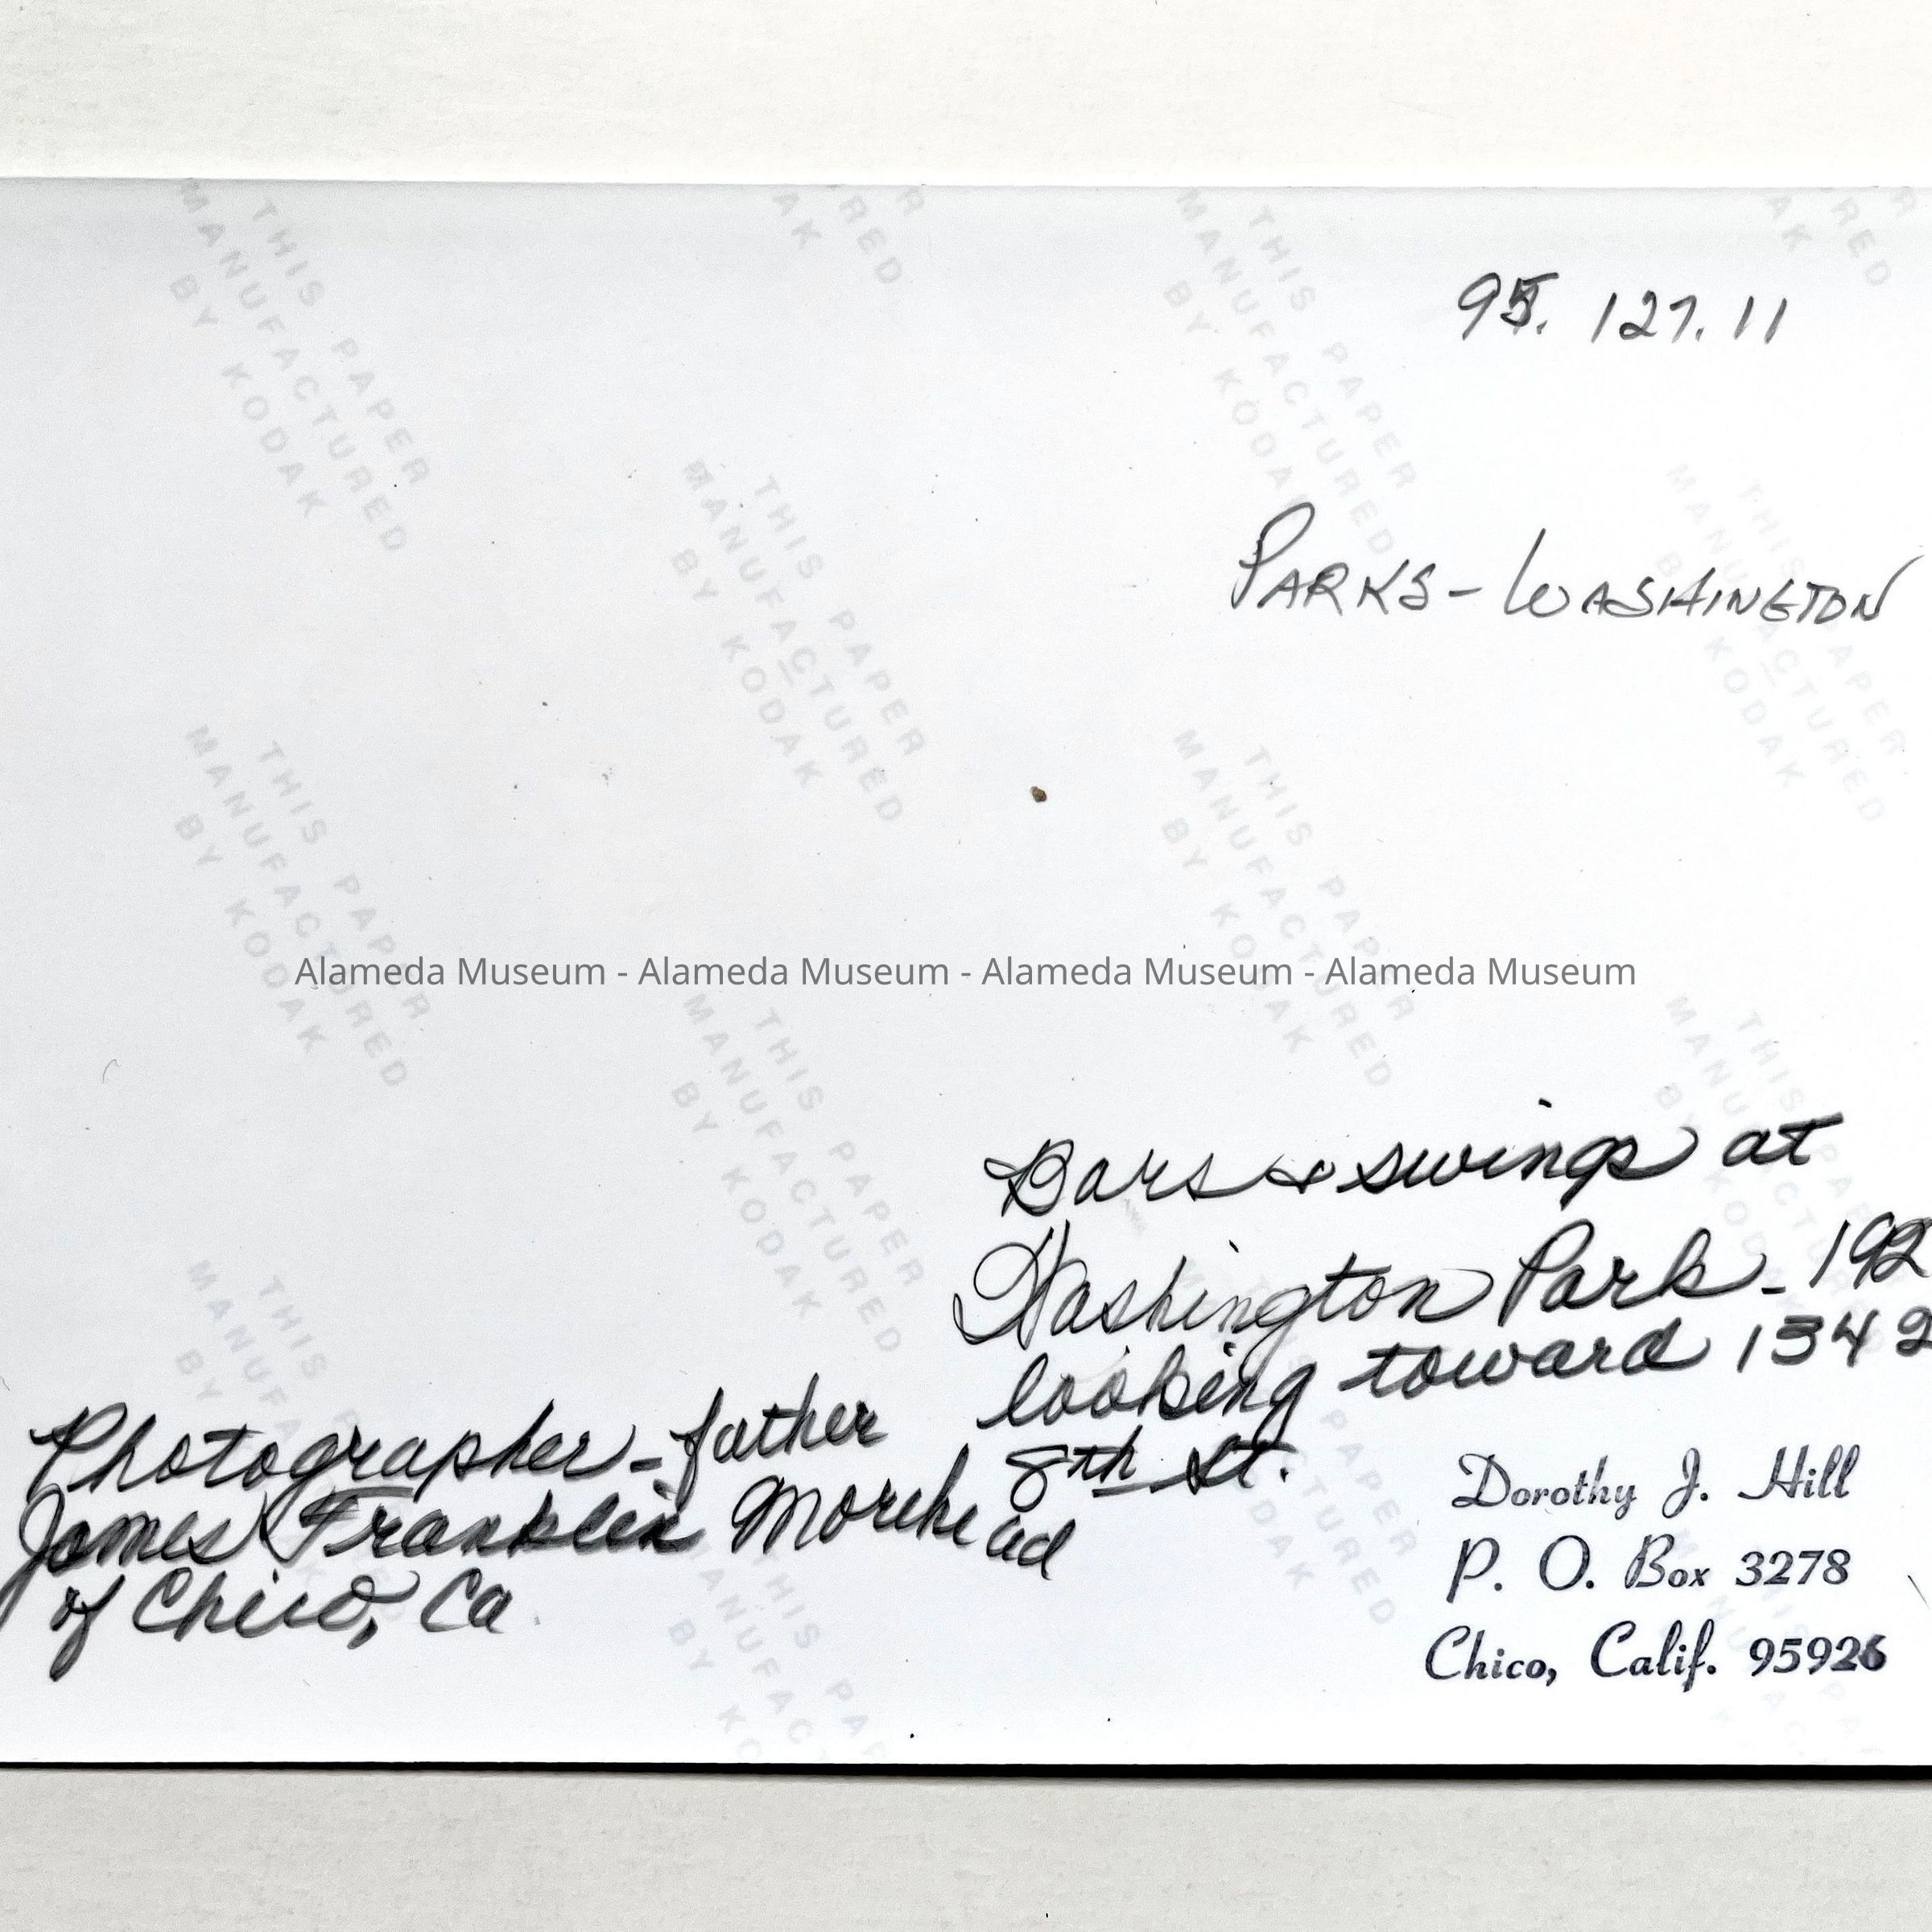 95. 127. 11
PARKS - WASHINGTON
Alameda Museum - Alameda Museum - Alameda Museum - Alameda Museum
Bars & swings at
Washington Park - 192
looking toward 1342
8th St.
Photographer - father
James Franklin Morehead
of Chico, Ca.
Dorothy J. Hill
P. O. Box 3278
Chico, Calif. 95926
THIS PAPER
MANUFACTURED
BY KODAK